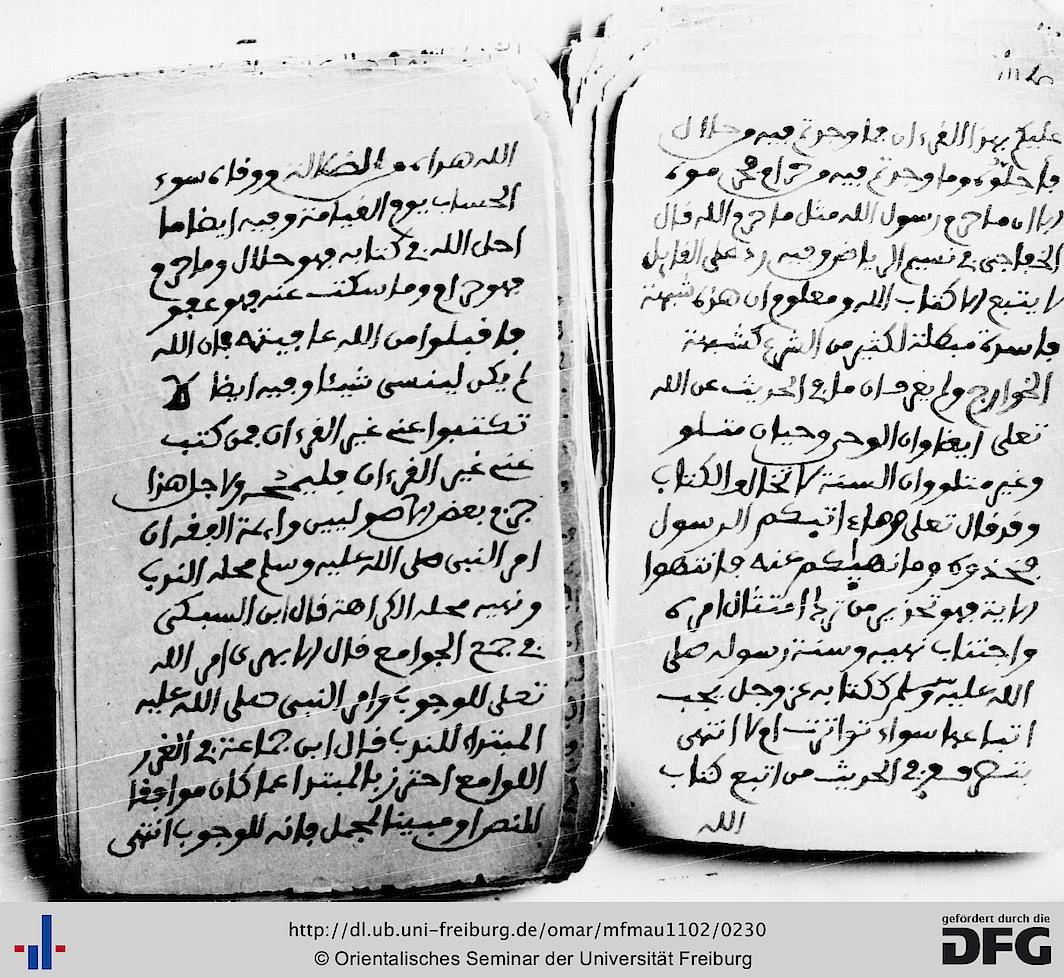 عليكم بهذا القرءان فما وجدتم فيه من حلال
فاحلوه وما وجدتم فيه من حرام فحرموه
الا ان ما حرم رسول الله مثل ما حرم الله قال
الخفاجي في نسيم الرياض وفيه رد على القايل
لا يتبع الا كتاب الله ومعلوم ان هذه شبهة
فاسدة مبطلة لكثير من الشرع كشبهة
الخوارج ولم يعرف ان ما في الحديث عن الله
تعلى ايضا وان الوحي وحيان متلو
وغير متلو وان السنة لا تخالف الكتاب
وقد قال تعلى وما ءاتيكم الرسول
فخذوه وما نهيكم عنه فانتهوا
الاية فهو تحذير من ترك امتثال امره
واجتناب نهيه وسنة رسوله صلى
الله عليه وسلم ككتابه عز وجل يجب
اتباعها سواء تواترت ام لا انتهى
وفي الحديث من اتبع كتاب
الله
الله هداه من الضلالة ووقاه سوء
الحساب يوم القيامة وفيه ايضا ما
احل الله في كتابه فهو حلال وما حرم
فهو حرام وما سكت عنه فهو عفو
فاقبلوا من الله عافيته فان الله
لم يكن لينسى شيئا وفيه ايضا لا
تكتبوا عني غير القرءان فمن كتب
عني غير القرءان فليمحه ولاجل هذا
جزم بعض الاصوليين وايمة الفقه ان
امر النبي صلى الله عليه وسلم محله الندب
ونهيه محله الكراهة قال ابن السبكي
في جمع الجوامع قال الابهري امر الله
تعلى للوجوب وامر النبي صلى الله عليه
المبتدا للندب قال ابن جماعة في الغرر
اللوامع احترز بالمبتدا عما كان موافقا
للنص او مبينا لمجمل فانه للوجوب انتهى
http://dl.ub.uni-freiburg.de/omar/mfmau1102/0230
© Orientalisches Seminar der Universität Freiburg
gefördert durch die
DFG